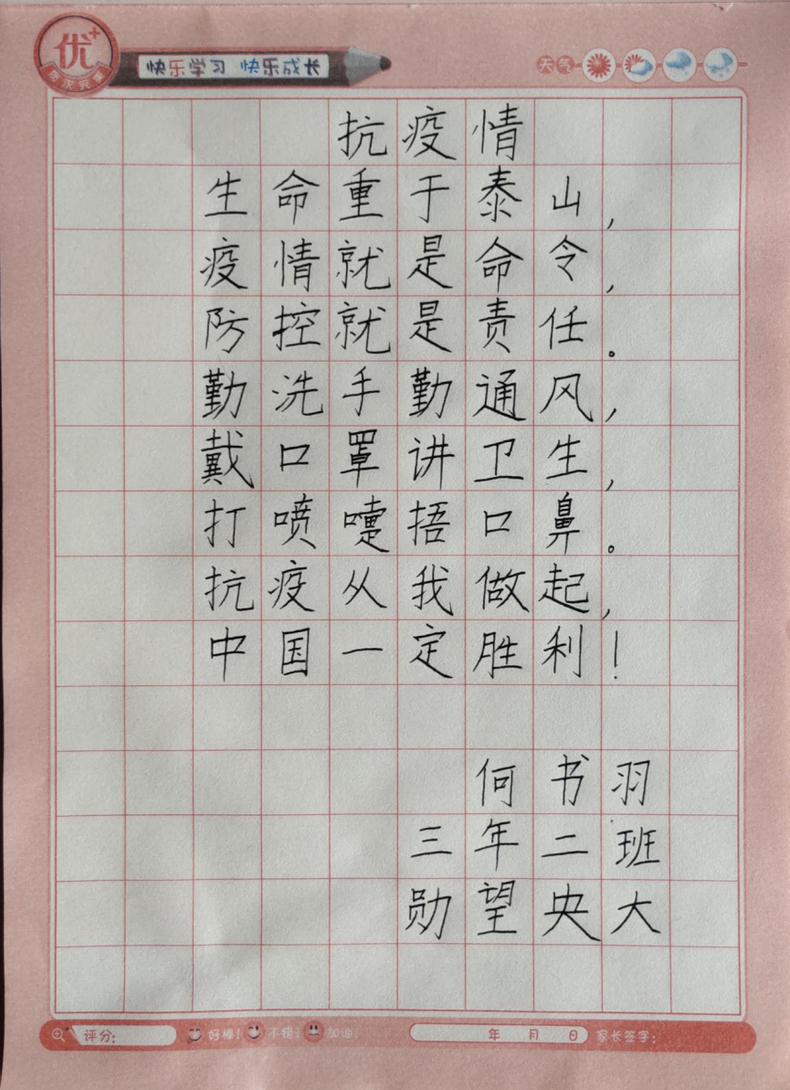 优+
快乐学习 快乐成长
天气
抗疫情
生命重于泰山，
疫情就是命令，
防控就是责任。
勤洗手勤通风，
戴口罩讲卫生，
打喷嚏捂口鼻。
抗疫从我做起，
中国一定胜利！
何书羽
三年二班
勋望央大
评分： 好棒！ 不错！ 加油！ 年 月 日 家长签字：